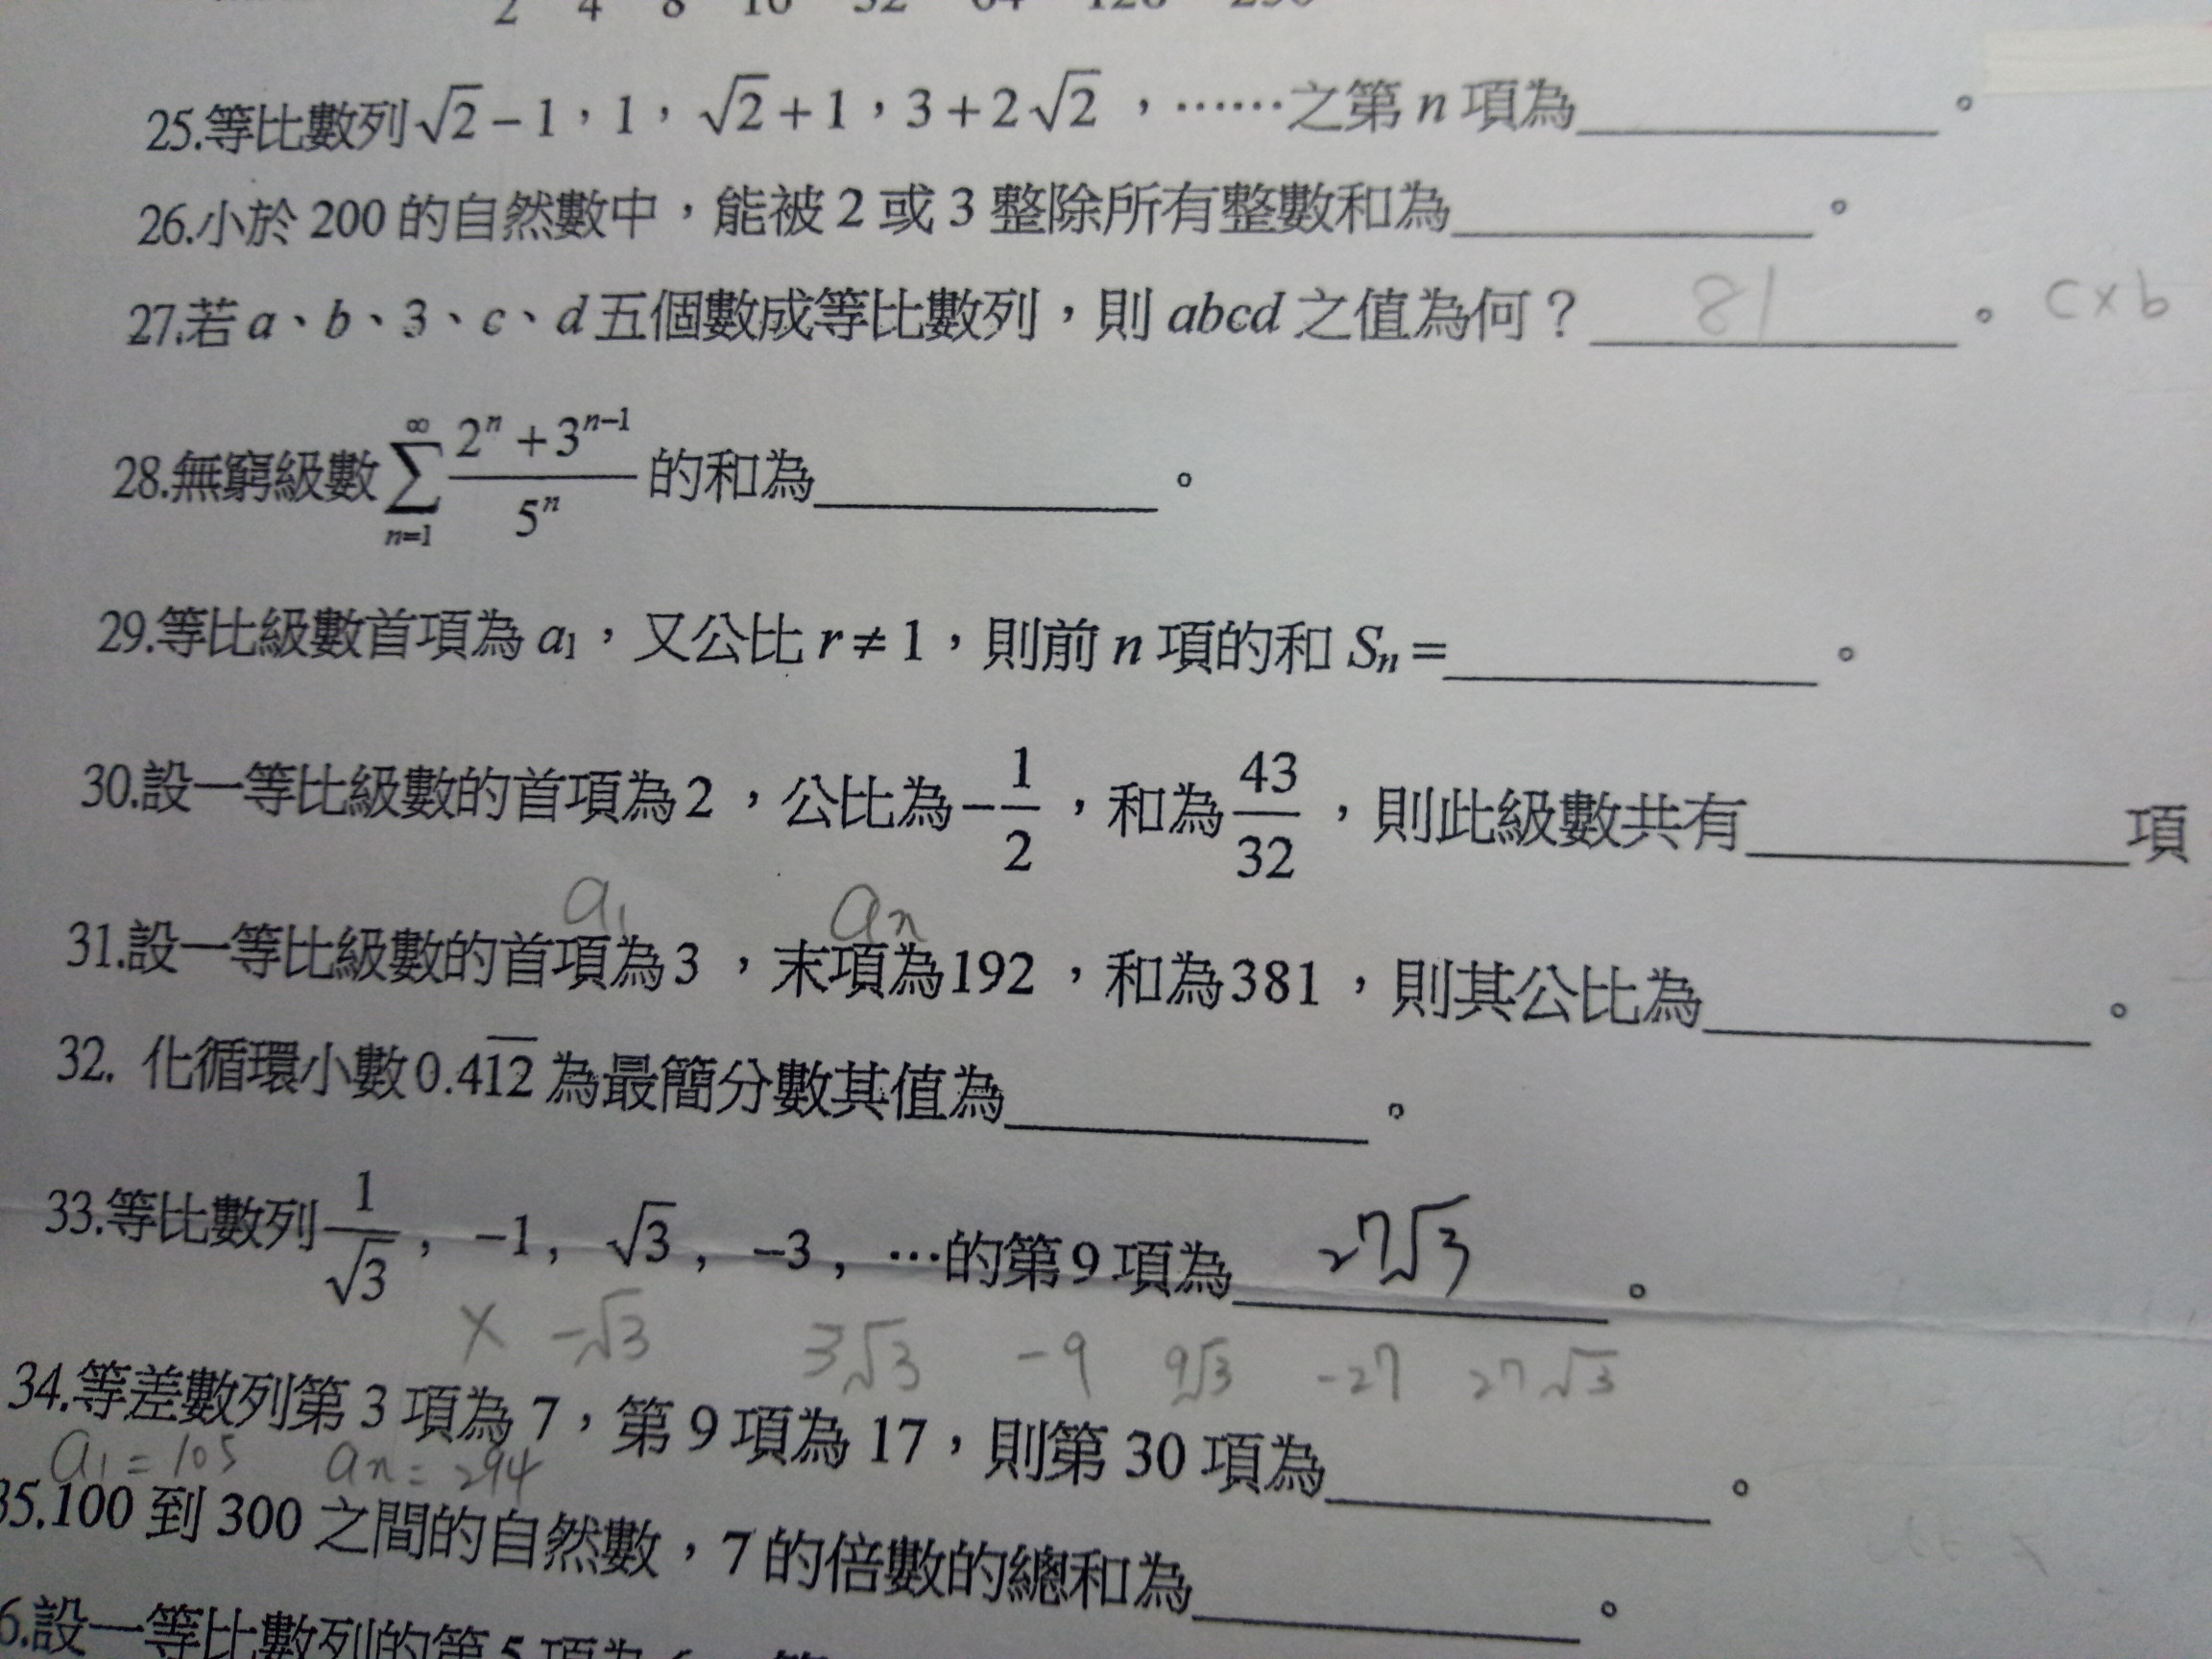 2 4 8 16 32 64 128 256
25.等比數列√2−1,1,√2+1,3+2√2,……之第 n 項為__________。
26.小於 200 的自然數中,能被 2 或 3 整除所有整數和為__________。
27.若 a、b、3、c、d 五個數成等比數列,則 abcd 之值為何?81。c×b
28.無窮級數 ∑_{n=1}^{∞} (2^n+3^{n−1})/5^n 的和為__________。
29.等比級數首項為 a₁,又公比 r≠1,則前 n 項的和 Sₙ=__________。
30.設一等比級數的首項為2,公比為−1/2,和為43/32,則此級數共有__________項
a₁ aₙ
31.設一等比級數的首項為3,末項為192,和為381,則其公比為__________。
32. 化循環小數0.41̅2̅為最簡分數其值為__________。
33.等比數列 1/√3, −1, √3, −3, …的第9項為27√3。
× −√3 3√3 −9 9√3 −27 27√3
34.等差數列第 3 項為 7,第 9 項為 17,則第 30 項為__________。
a₁=105 aₙ=294
35.100 到 300 之間的自然數,7 的倍數的總和為__________。
6.設一等比數列的第5項為